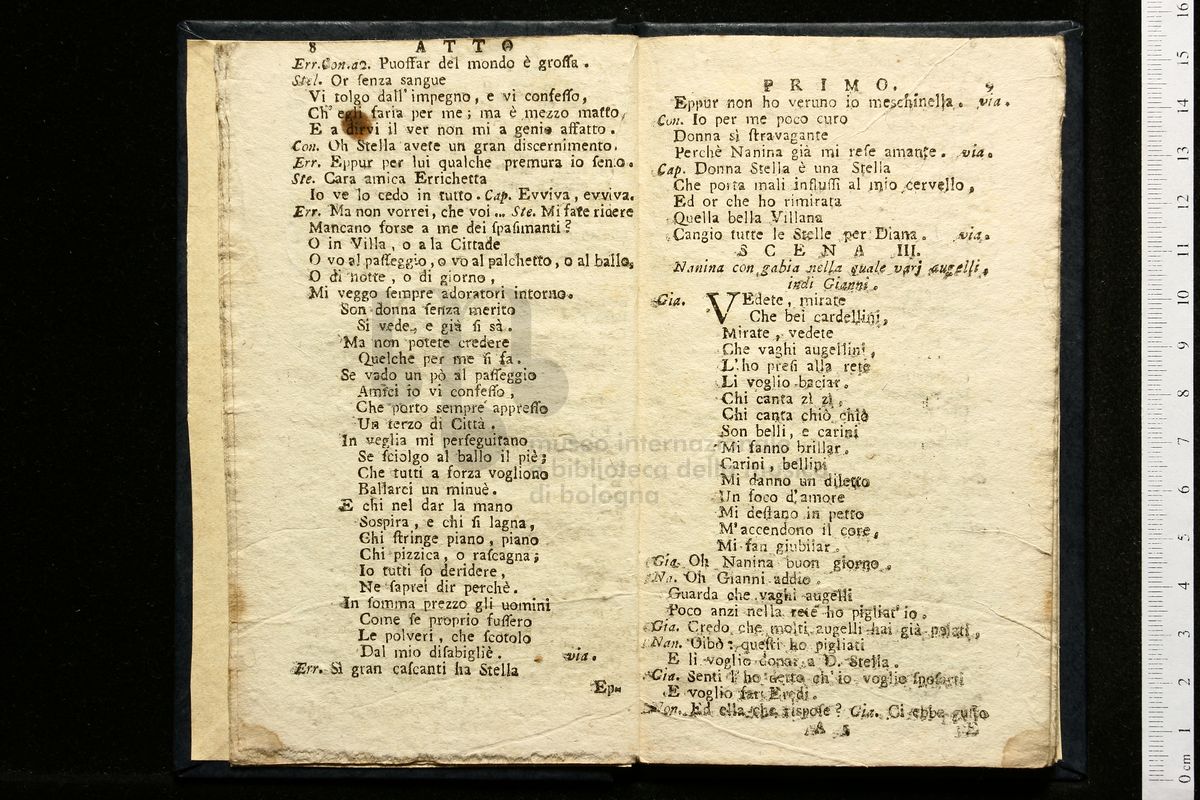 8 ATTO
Err. Con. a 2. Puoſſar del mondo è groſſa.
Stel. Or ſenza sangue
Vi tolgo dall'impegno, e vi confeſſo,
Ch' egli faria per me; ma è mezzo matto,
E a dirvi il ver non mi a genio affatto.
Con. Oh Stella avete un gran discernimento.
Err. Eppur per lui qualche premura io ſento.
Ste. Cara amica Errichetta
Io ve lo cedo in tutto. Cap. Evviva, evviva.
Err. Ma non vorrei, che voi ... Ste. Mi fate ridere
Mancano forse a me dei ſpaſimanti?
O in Villa, o a la Cittade
O vo al paſſeggio, o vo al palchetto, o al ballo,
O di notte, o di giorno,
Mi veggo ſempre adoratori intorno.
Son donna ſenza merito
Si vede, e già ſi sà.
Ma non potete credere
Quelche per me ſi fa.
Se vado un pò al paſſeggio
Amici io vi confeſſo,
Che porto sempre appreſſo
Un terzo di Città.
In veglia mi perſeguitano
Se ſciolgo al ballo il piè;
Che tutti a forza vogliono
Ballarci un minuè.
E chi nel dar la mano
Sospira, e chi ſi lagna,
Chi ſtringe piano, piano
Chi pizzica, o raſcagna;
Io tutti ſo deridere,
Ne ſaprei dir perchè.
In ſomma prezzo gli uomini
Come ſe proprio fuſſero
Le polveri, che ſcotolo
Dal mio diſabigliè. via.
Err. Sì gran caſcanti ha Stella
Ep-
PRIMO. 9
Eppur non ho veruno io meſchinella. via.
Con. Io per me poco curo
Donna sì ſtravagante
Perchè Nanina già mi reſe amante. via.
Cap. Donna Stella è una Stella
Che porta mali influſſi al mio cervello,
Ed or che ho rimirata
Quella bella Villana
Cangio tutte le Stelle per Diana. via.
SCENA III.
Nanina con gabia nella quale varj augelli,
indi Gianni.
Gia. VEdete, mirate
Che bei cardellini,
Mirate, vedete
Che vaghi augellini,
L'ho preſi alla rete
Li voglio baciar.
Chi canta zì zì,
Chi canta chiò chiò
Son belli, e carini
Mi fanno brillar.
Carini, bellini
Mi danno un diletto
Un foco d'amore
Mi deſtano in petto
M'accendono il core,
Mi fan giubilar.
Gia. Oh Nanina buon giorno.
Na. Oh Gianni addio.
Guarda che vaghi augelli
Poco anzi nella rete ho pigliat' io.
Gia. Credo che molti augelli hai già pelati,
Nan. Oibò: queſti ho pigliati
E li voglio donar a D. Stella.
Gia. Senti l'ho detto ch' io voglio ſpoſarti
E voglio far Eredi.
Non. Ed ella che riſpoſe? Gia. Ci ebbe guſto
A